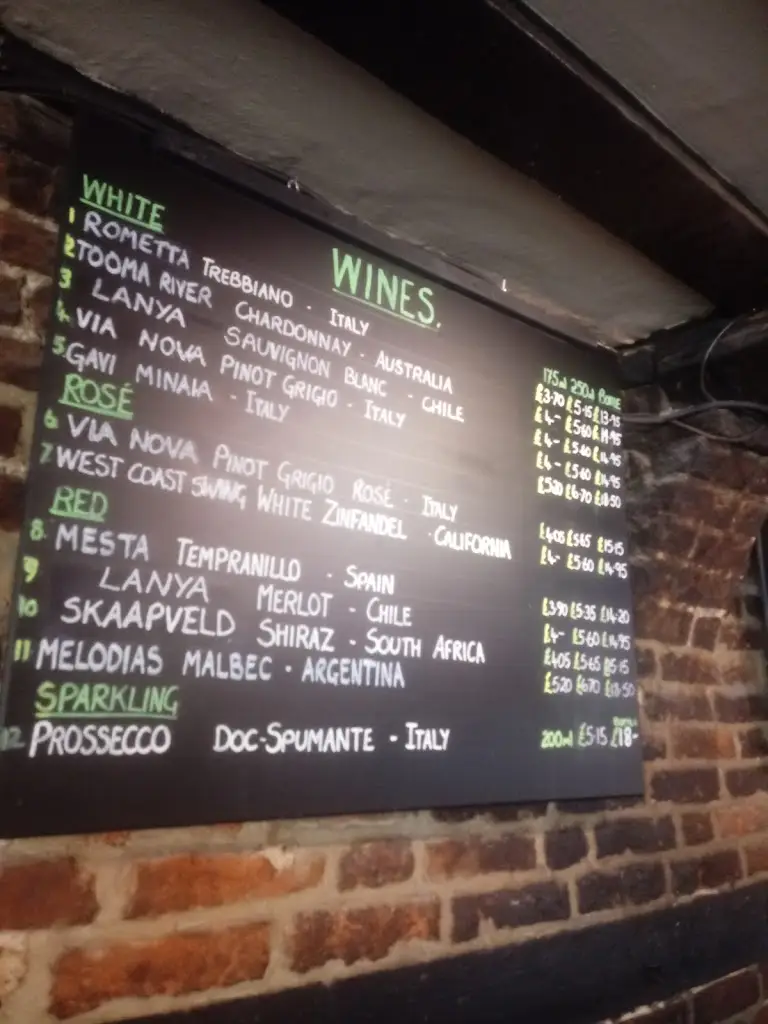 WINES.
WHITE
175ml 250ml Bottle
1 ROMETTA TREBBIANO - ITALY £3.70 £5.15 £13.95
2 TOOMA RIVER CHARDONNAY - AUSTRALIA £4- £5.60 £14.95
3 LANYA SAUVIGNON BLANC - CHILE £4- £5.60 £14.95
4. VIA NOVA PINOT GRIGIO - ITALY £4- £5.60 £14.95
5. GAVI MINAIA - ITALY £5.20 £6.70 £18.50
ROSÉ
6 VIA NOVA PINOT GRIGIO ROSÉ - ITALY £4.05 £5.65 £15.15
7 WEST COAST SWING WHITE ZINFANDEL - CALIFORNIA £4- £5.60 £14.95
RED
8. MESTA TEMPRANILLO - SPAIN £3.90 £5.35 £14.20
9 LANYA MERLOT - CHILE £4- £5.60 £14.95
10 SKAAPVELD SHIRAZ - SOUTH AFRICA £4.05 £5.65 £15.15
11 MELODIAS MALBEC - ARGENTINA £5.20 £6.70 £18.50
SPARKLING
Bottle
12 PROSSECCO DOC-SPUMANTE - ITALY 200ml £5.15 £18-